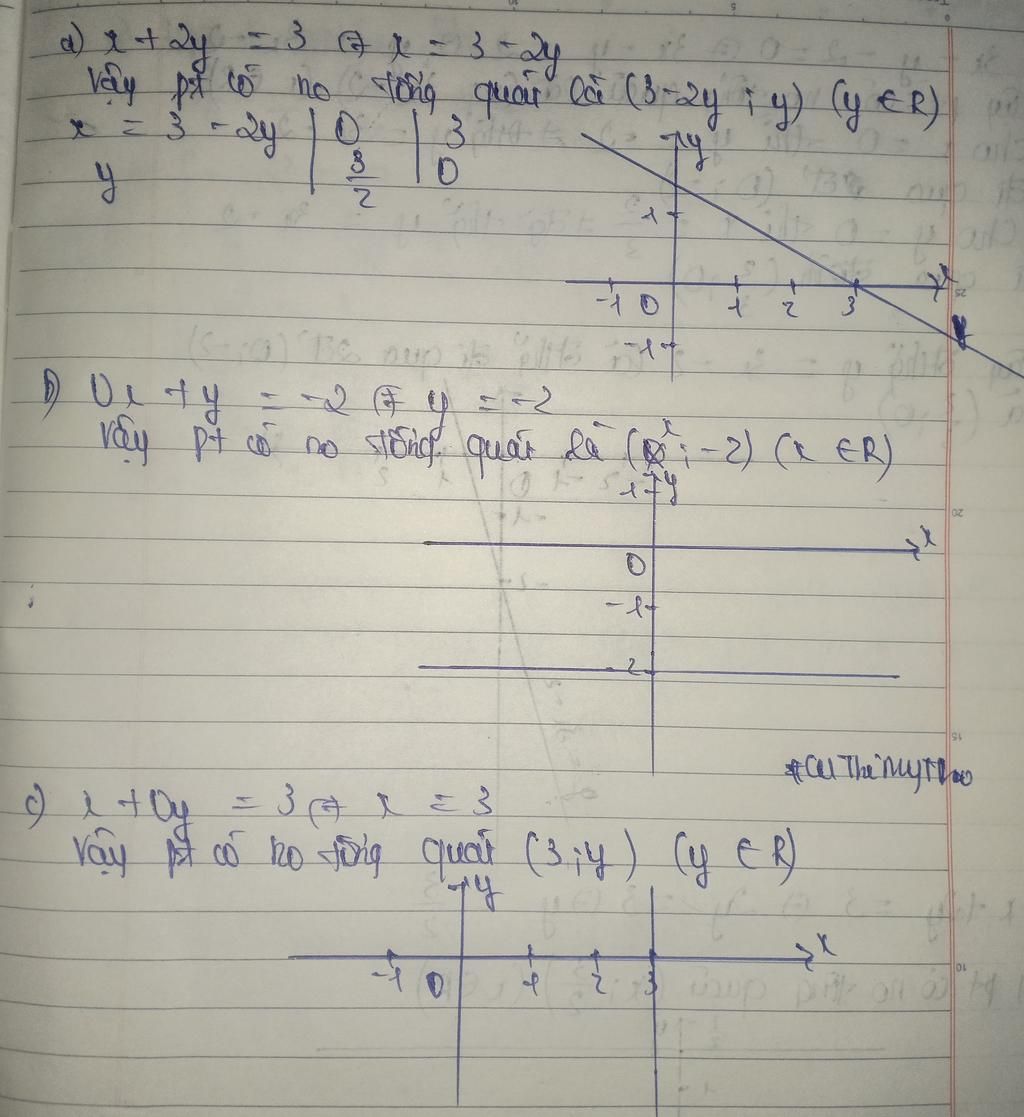 a) x + 2y = 3 ⇔ x = 3 - 2y
Vậy pt có no tổng quát là (3-2y ; y) (y ∈ R)
x = 3 - 2y | 0 | 3
y | 3/2 | 0
y
1
x
-1 0 1 2 3
-1
b) 0x + y = -2 ⇔ y = -2
Vậy pt có no tổng quát là (x ; -2) (x ∈ R)
1 y
x
0
-1
-2
c) x + 0y = 3 ⇔ x = 3
Vậy pt có no tổng quát (3 ; y) (y ∈ R)
y
x
-1 0 1 2 3